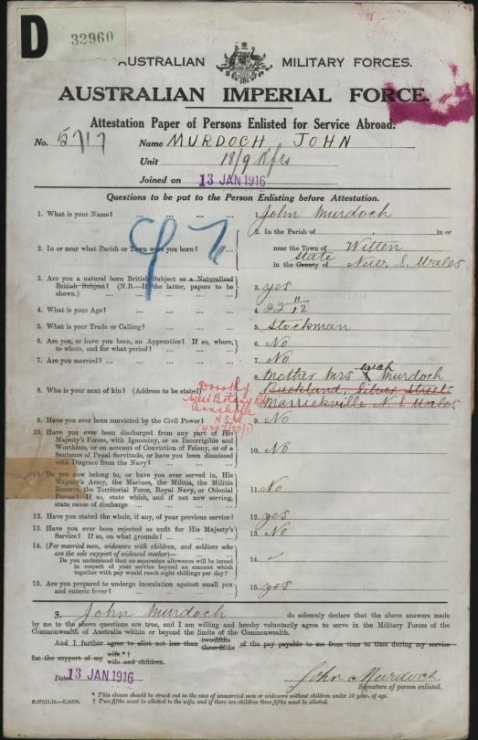 D
32960
AUSTRALIAN MILITARY FORCES.
AUSTRALIAN IMPERIAL FORCE.
Attestation Paper of Persons Enlisted for Service Abroad.
No. 5717 Name MURDOCH JOHN
Unit 18/9 Rfts
Joined on 13 JAN 1916
Questions to be put to the Person Enlisting before Attestation.
1. What is your Name? ... ... ... ... 1. John Murdoch
2. In or near what Parish or Town were you born? ... 2. In the Parish of in or
near the Town of Witten
in the County of state New S. Wales
3. Are you a natural born British Subject or a Naturalised
British Subject? (N.B.—If the latter, papers to be
shown.) ... ... 3. yes
4. What is your Age? ... ... ... 4. 22 11/12
5. What is your Trade or Calling? ... ... 5. Stockman
6. Are you, or have you been, an Apprentice? If so, where,
to whom, and for what period? ... ... 6. No
7. Are you married? ... ... ... 7. No
8. Who is your next of kin? (Address to be stated) 8. Mother Mrs Murdoch
Buckland, Street
Marrickville N. S. Wales
Dorothy
N.S.W
9. Have you ever been convicted by the Civil Power? 9. No
10. Have you ever been discharged from any part of His
Majesty's Forces, with Ignominy, or as Incorrigible and
Worthless, or on account of Conviction of Felony, or of a
Sentence of Penal Servitude, or have you been dismissed
with Disgrace from the Navy? ... ... 10. No
11. Do you now belong to, or have you ever served in, His
Majesty's Army, the Marines, the Militia, the Militia
Reserve, the Territorial Force, Royal Navy, or Colonial
Forces? If so, state which, and if not now serving,
state cause of discharge ... ... 11. No
12. Have you stated the whole, if any, of your previous service? 12. yes
13. Have you ever been rejected as unfit for His Majesty's
Service? If so, on what grounds? ... 13. No
14. (For married men, widowers with children, and soldiers who
are the sole support of widowed mother)—
Do you understand that no separation allowance will be issued
in respect of your service beyond an amount which
together with pay would reach eight shillings per day? 14.
15. Are you prepared to undergo inoculation against small pox
and enteric fever? ... ... 15. yes
I, John Murdoch do solemnly declare that the above answers made
by me to the above questions are true, and I am willing and hereby voluntarily agree to serve in the Military Forces of the
Commonwealth of Australia within or beyond the limits of the Commonwealth.
And I further agree to allot not less than two-fifths three-fifths of the pay payable to me from time to time during my service
for the support of my wife.* wife and children.
Date 13 JAN 1916 John Murdoch
Signature of person enlisted.
* This clause should be struck out in the case of unmarried men or widowers without children under 18 years of age.
† Two-fifths must be allotted to the wife, and if there are children three-fifths must be allotted.